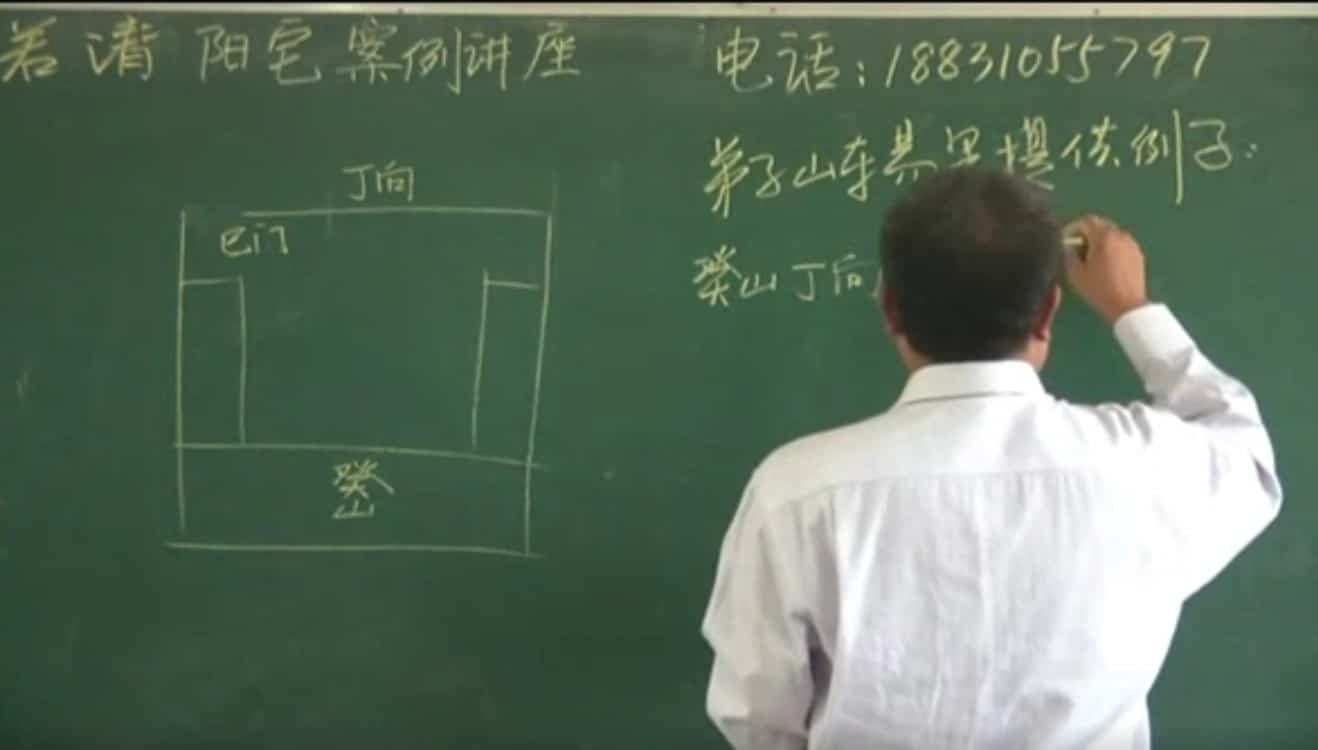 若清 阳宅案例讲座
电话：18831055797
弟子山东易 提供例子：
癸山丁向
丁向
巳门
癸山